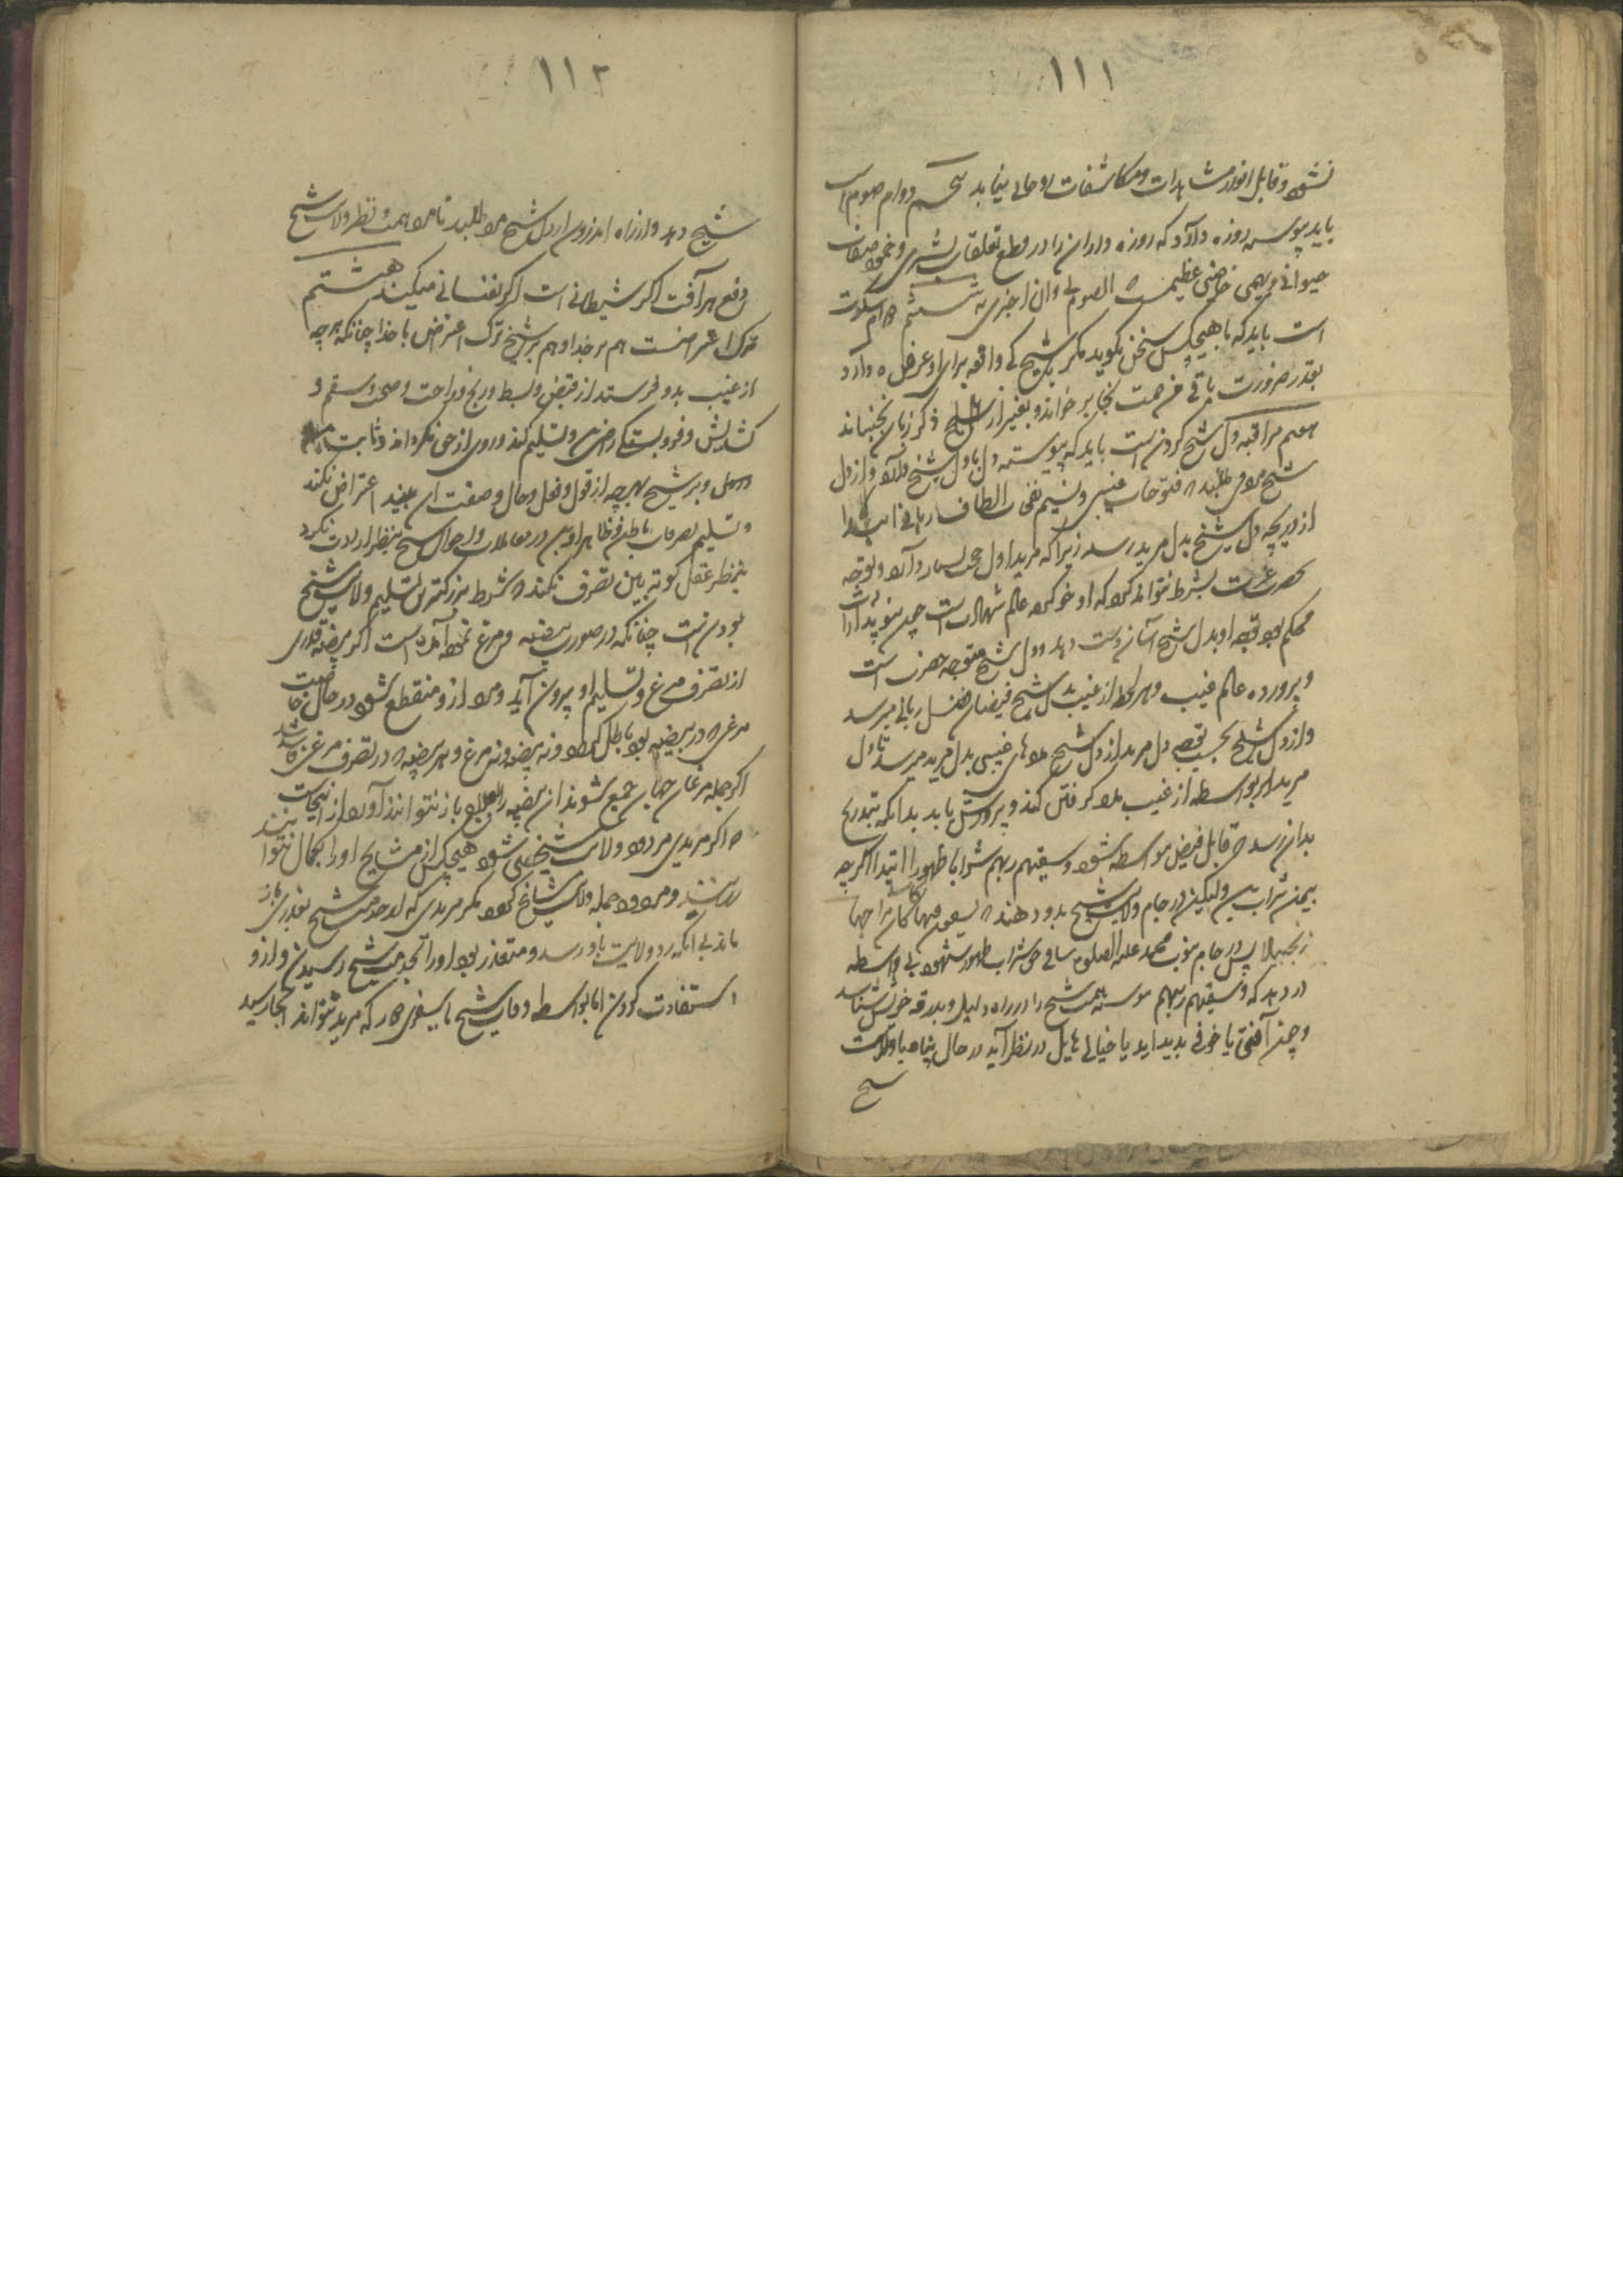 ۱۱۱
نشود و قابل انوار مشاهدات و مکاشفات روحانی نیاید پنجم دوام صوم است
باید پیوسته روزه دارد که روزه داران را در قطع تعلقات بشری و خمود صفات
حیوانی و بهیمی خاصیتی عظیمست که الصوم لی وانا اجزی به ششم دوام سکوت
است باید که با هیچکس سخن نکوید مکر با شیخ که واقعه برای او عرضه دارد
بقدر ضرورت باقی من صمت نجا بر خواند و بغیر از ذکر زبان نجنباند
هفتم مراقبه دل شیخ کردن است باید که پیوسته دل با دل شیخ دارد و از دل
شیخ مدد می طلبد که فتوحات غیبی و نسیم نفحات الطاف ربانی ابتدا
از دریچه دل شیخ بدل مرید رسد زیرا که مرید اول حجب بسیار دارد و توجه
بحضرت عزت بشرط نتواند کرد که او خو کرده عالم شهادت است چون پیوند ارادت
محکم بود توجه او بدل شیخ آسان دست دهد و دل شیخ متوجه حضرت است
و پرورده عالم غیب و هر لحظه از غیب بدل شیخ فیضان فضل ربانی میرسد
و از دل شیخ بحسب توجه دل مرید از دل شیخ مددهای غیبی بدل مرید میرسد تا دل
مرید بواسطه از غیب مدد کرفتن کند و پرورش یابد بدانکه بتدریج
بدان رسد که قابل فیض بی واسطه شود و سقیهم ربهم شرابا طهورا ابتدا اکرچه
بیمن شراب ولیکن در جام ولایت شیخ بدو دهند که یسقون فیها کأسا کان مزاجها
زنجبیلا پس در جام نبوت محمد علیه الصلوة ساقی حق شراب طهور شهود بی واسطه
در دهد که و سقیهم ربهم همت شیخ را در راه دلیل و بدرقه خویش شناسد
و چون آفتی یا خوفی پدید آید یا خیالی هایل در نظر آید در حال پناه با ولایت
شیخ
۱۱۲
شیخ دهد و از راه اندرون از دل شیخ مدد طلبد تا مدد همت و نظر ولایت شیخ
دفع هر آفت اکر شیطانی است اکر نفسانی میکند هشتم
ترک اعتراضست هم بر خدا و هم بر شیخ ترک اعتراض با خدا چنانکه هرچه
از غیب بدو فرستد از قبض و بسط و رنج و راحت و صحت و سقم و
کشایش و فروبستکی راضی و تسلیم کند و روی از حق نکرداند و ثابت
و بر شیخ بهرچه از قول و فعل و حال و صفت ان بیند اعتراض نکند
و تسلیم تصرفات باطنی و ظاهر او بود در معاملات و احوال شیخ بنظر ارادت نکرد
بنظر عقل کوته بین تصرف نکند که شرط بزرکترین تسلیم ولایت شیخ
بودن است چنانکه در صورت بیضه و مرغ نموده آمده است اکر بیضه قدری
از تصرف مرغ و تسلیم او بیرون آید و مدد ازو منقطع شود در حال خاصیت
مرغی که در بیضه بود باطل کردد و نه بیضه و نه مرغ و هر بیضه که در تصرف مرغی فاسد شد
اکر جمله مرغان جهان جمع شوند ان بیضه را باصلاح باز نتوانند آورد از اینجاست
که اکر مریدی مردود ولایت شیخی شود هیچکس از مشایخ او را بکمال نتوانند
رسانید و مردود جمله ولایت مشایخ کردد مکر مریدی که از خدمت شیخ بعذری باز
ماند بی انکه رد ولایت باو رسد و متعذر بود او را بخدمت شیخ رسیدن و ازو
استفادت کردن اما بواسطه وفات شیخ یا سفری دور که مرید نتواند انجا رسید